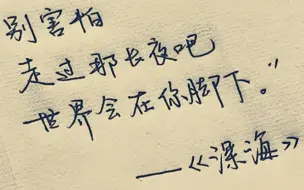 别害怕
走过那长夜吧
世界会在你脚下。”
——《深海》